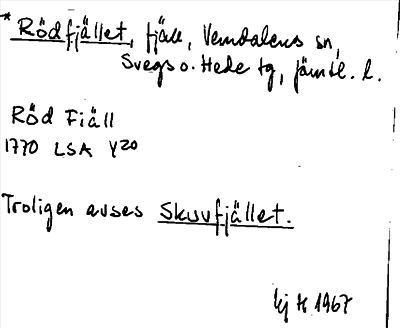 * Rödfjället, fjäll, Vemdalens sn,
Svegs o. Hede tg, Jämtl. l.
Röd Fiäll
1770 LSA Y20
Troligen avses Skuvfjället.
H 1967